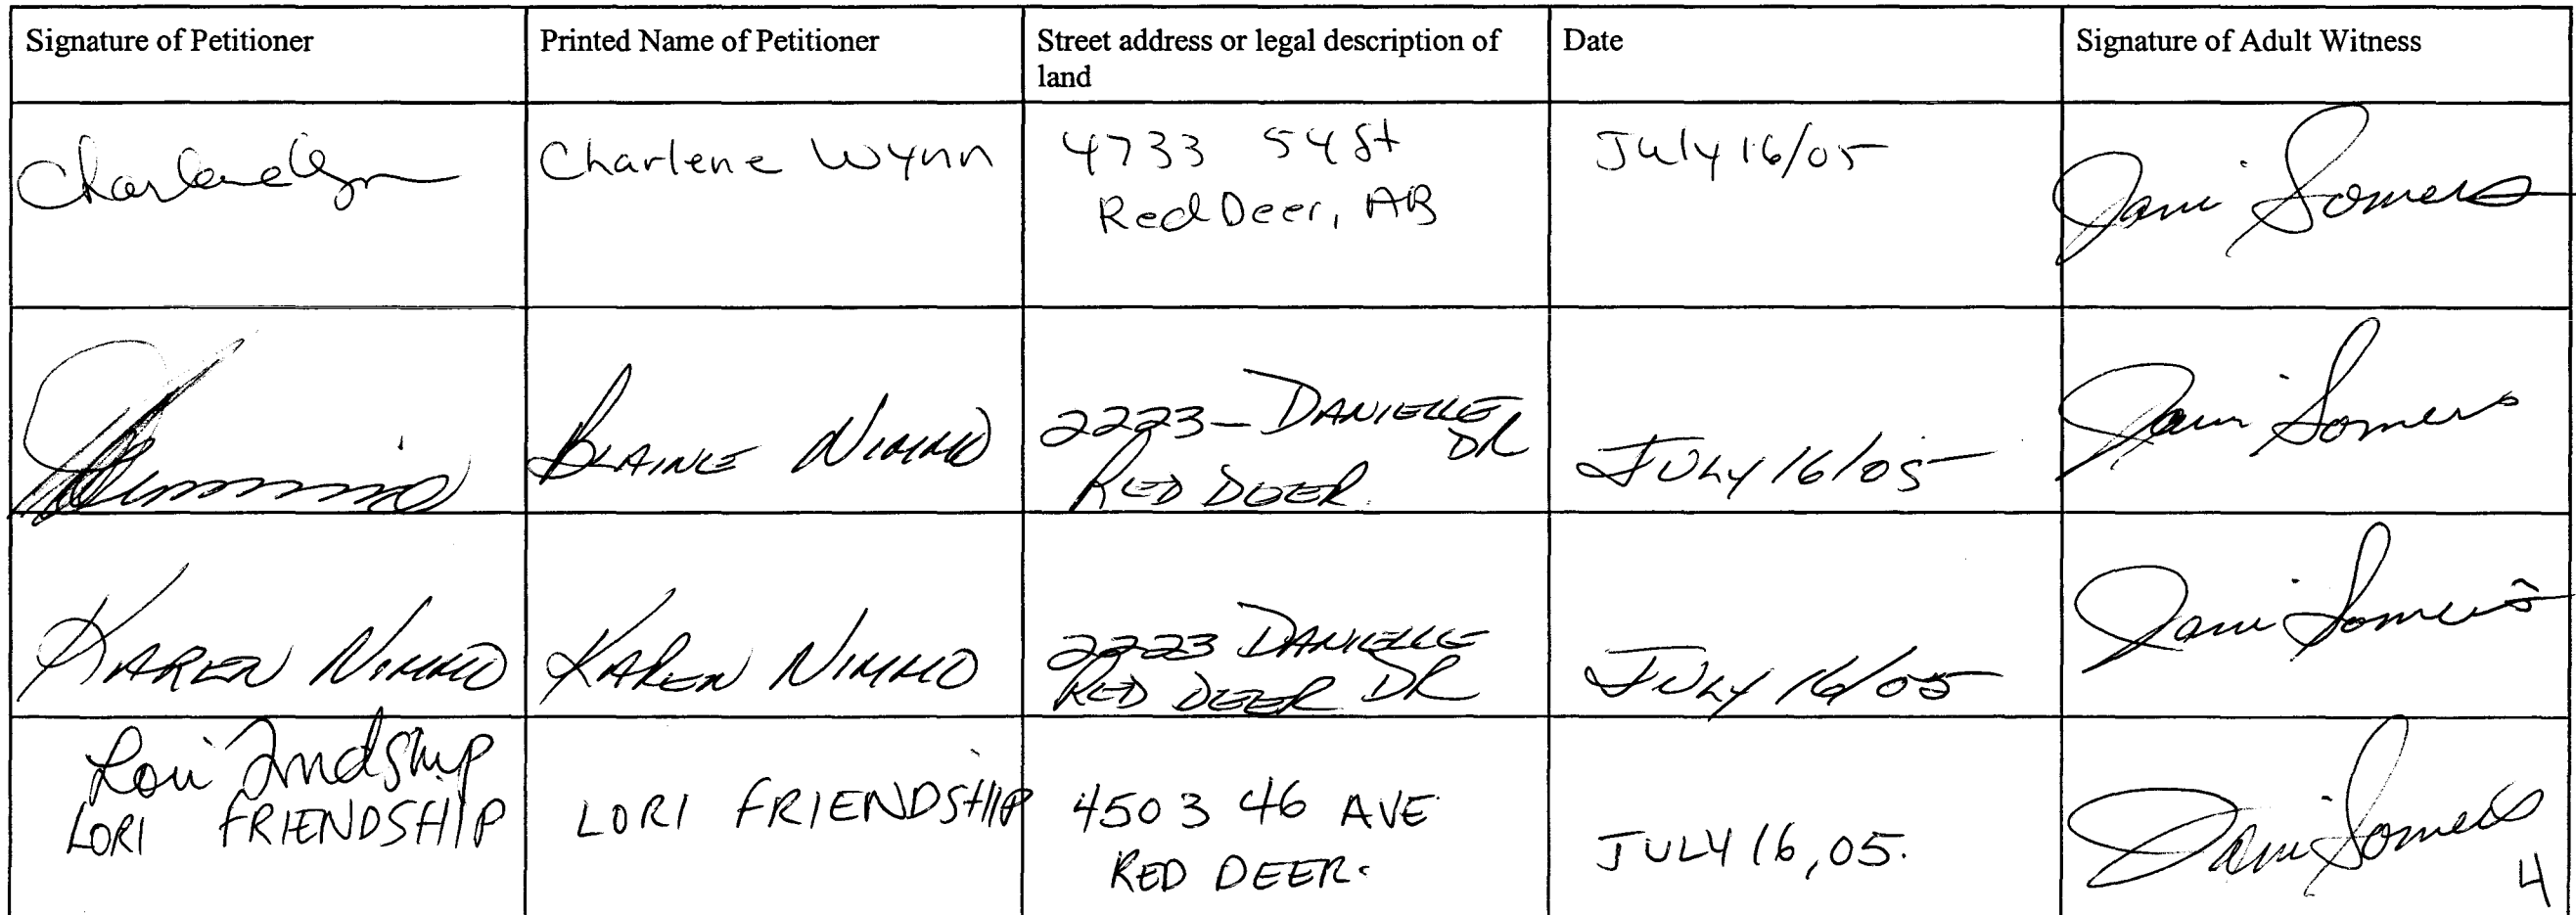 Signature of Petitioner
Printed Name of Petitioner
Street address or legal description of
land
Date
Signature of Adult Witness
Charlene Wynn
Charlene Wynn
4733 54 St
Red Deer, AB
July 16/05
Jani Somers
BLAINE NIMMO
2223 - DANIELLE
DR
RED DEER.
JULY 16/05
Jani Somers
KAREN NIMMO
KAREN NIMMO
2223 DANIELLE
RED DEER DR
JULY 16/05
Jani Somers
Lori Friendship
LORI FRIENDSHIP
LORI FRIENDSHIP
4503 46 AVE
RED DEER.
JULY 16, 05.
Jani Somers
4